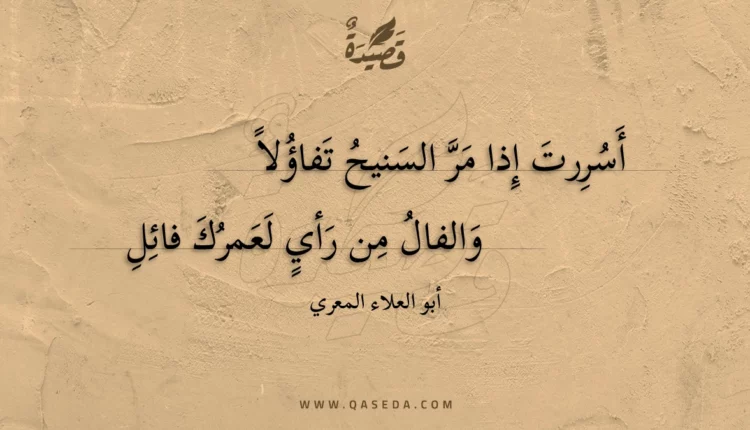 قَصِيدَةٌ
أَسُرِرتَ إِذا مَرَّ السَنيحُ تَفاؤُلاً
وَالفالُ مِن رَأيٍ لَعَمرُكَ فائِلِ
أبو العلاء المعري
WWW.QASEDA.COM